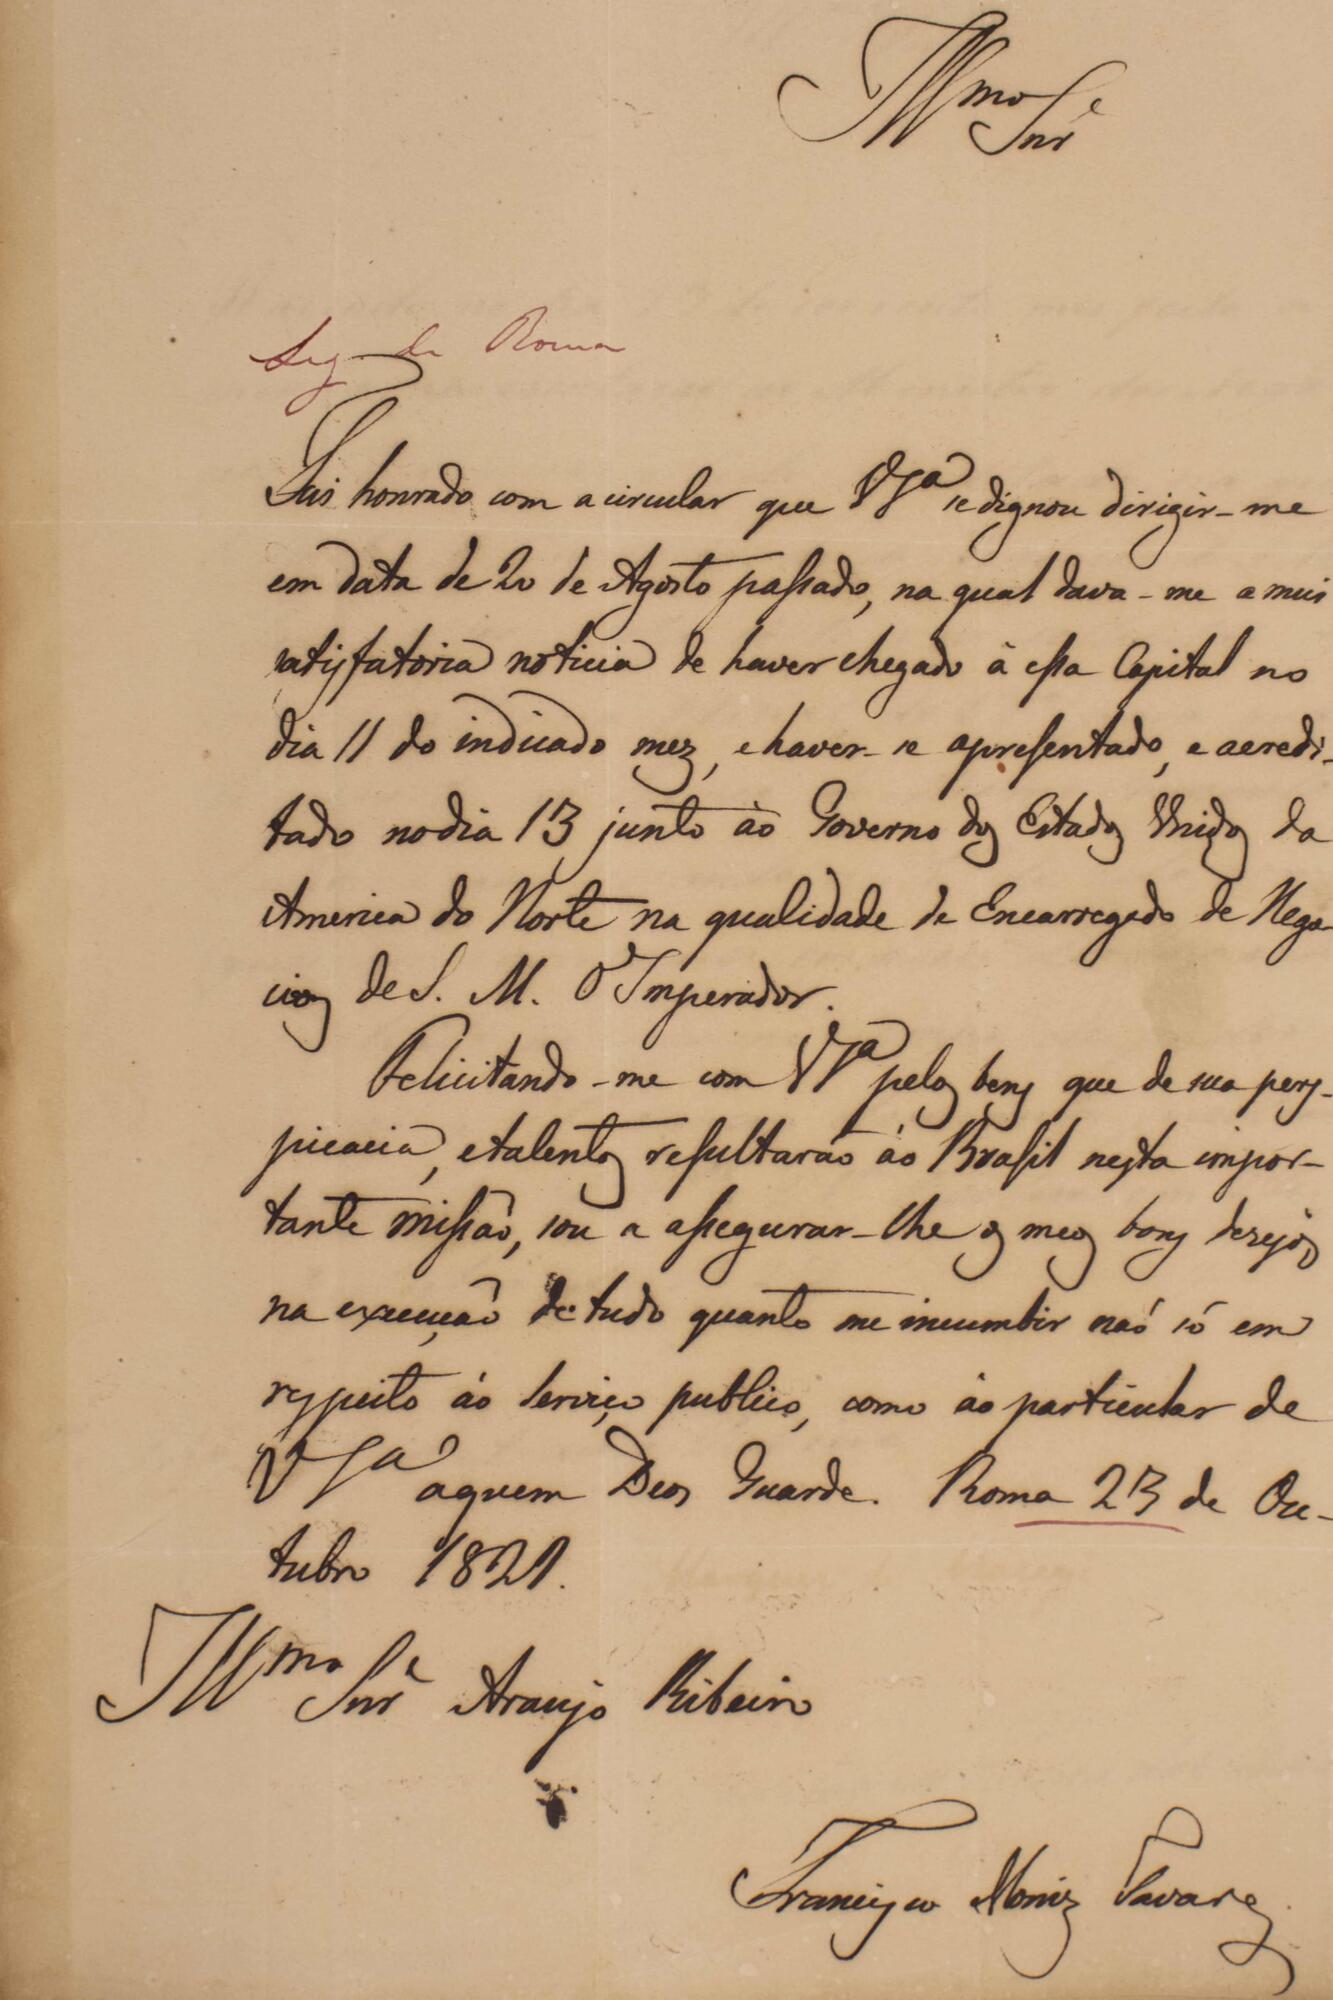 Illmo Snre
Leg. de Roma
Fui honrado com a circular que VSa se dignou dirigir-me
em data de 20 de Agosto passado, na qual dava-me a mui
satisfatoria noticia de haver chegado à essa Capital no
dia 11 do indicado mez, e haver-se apresentado, e acredi-
tado no dia 13 junto ào Governo dos Estados Unidos da
America do Norte na qualidade de Encarregado de Nego-
cios de S. M. O Imperador.
Felicitando-me com VSa pelos bens que de sua pers-
picacia, e talentos resultarão ào Brasil nesta impor-
tante missão, sou a assegurar-lhe os meos bons desejos
na execução de tudo quanto me incumbir naó só em
respeito ào Serviço publico, como ào particular de
VSa aquem Deos Guarde. Roma 23 de Ou-
tubro
Illmo Snre Araujo Ribeiro
Francisco Moniz Tavares